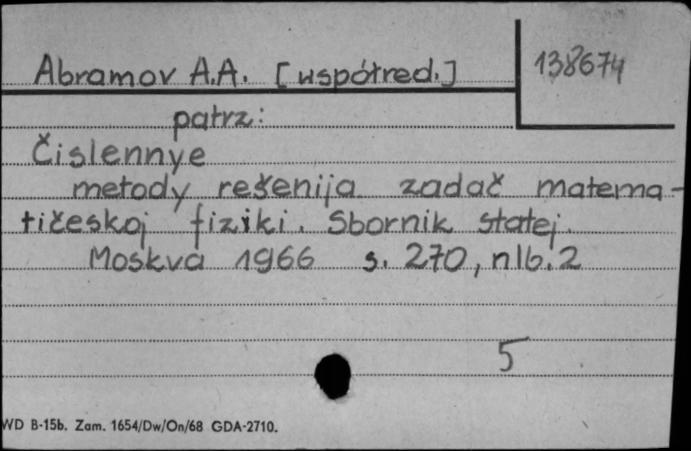 Abramov A.A. [współred.]
138674
patrz:
Čislennye
metody rešenija zadač matema-
tičeskoj fiziki. Sbornik statej.
Moskva 1966 s. 270, nlb. 2
5
WD B-15b. Zam. 1654/Dw/On/68 GDA-2710.